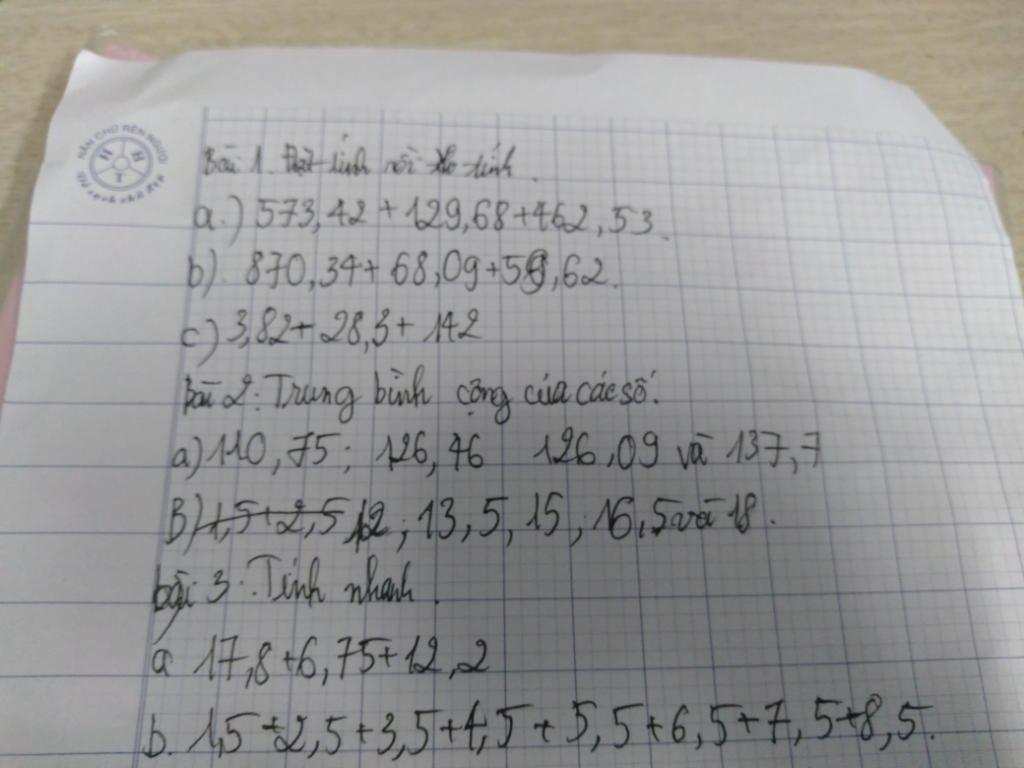 NÂN CHỮ RÈN NGƯỜI
H H
T
Bài 1. Đặt tính rồi tính.
a.) 573,42 + 129,68 + 462,53.
b). 870,34 + 68,09 + 59,62.
c) 3,82 + 28,3 + 142
Bài 2: Trung bình cộng của các số:
a) 110,75; 126,46 126,09 và 137,7
B) 1,5 + 2,5 12; 13,5, 15; 16,5 và 18.
bài 3: Tính nhanh.
a 17,8 + 6,75 + 12,2
b. 1,5 + 2,5 + 3,5 + 4,5 + 5,5 + 6,5 + 7,5 + 8,5.